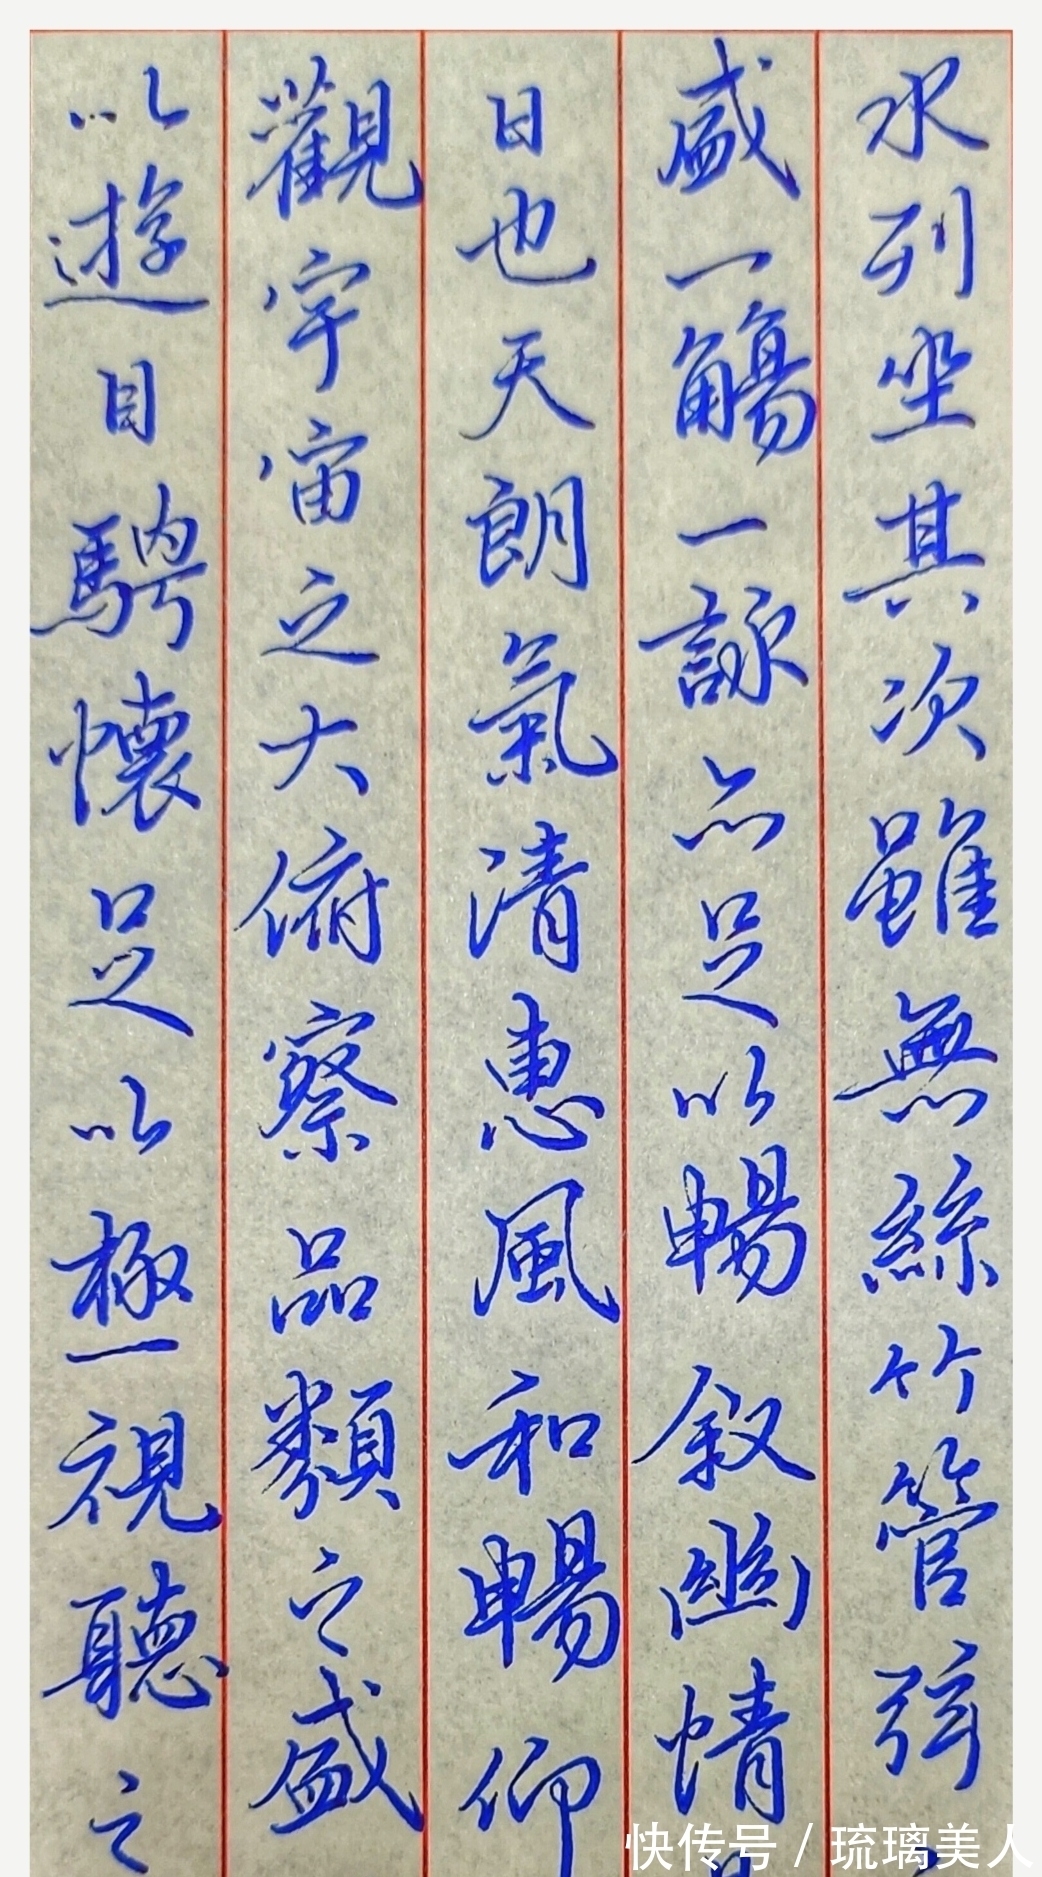 水列坐其次雖無絲竹管弦
盛一觴一詠亦足以暢叙幽情
日也天朗氣清惠風和暢仰
觀宇宙之大俯察品類之盛
以遊目騁懷足以極視聽之
快传号/琉璃美人